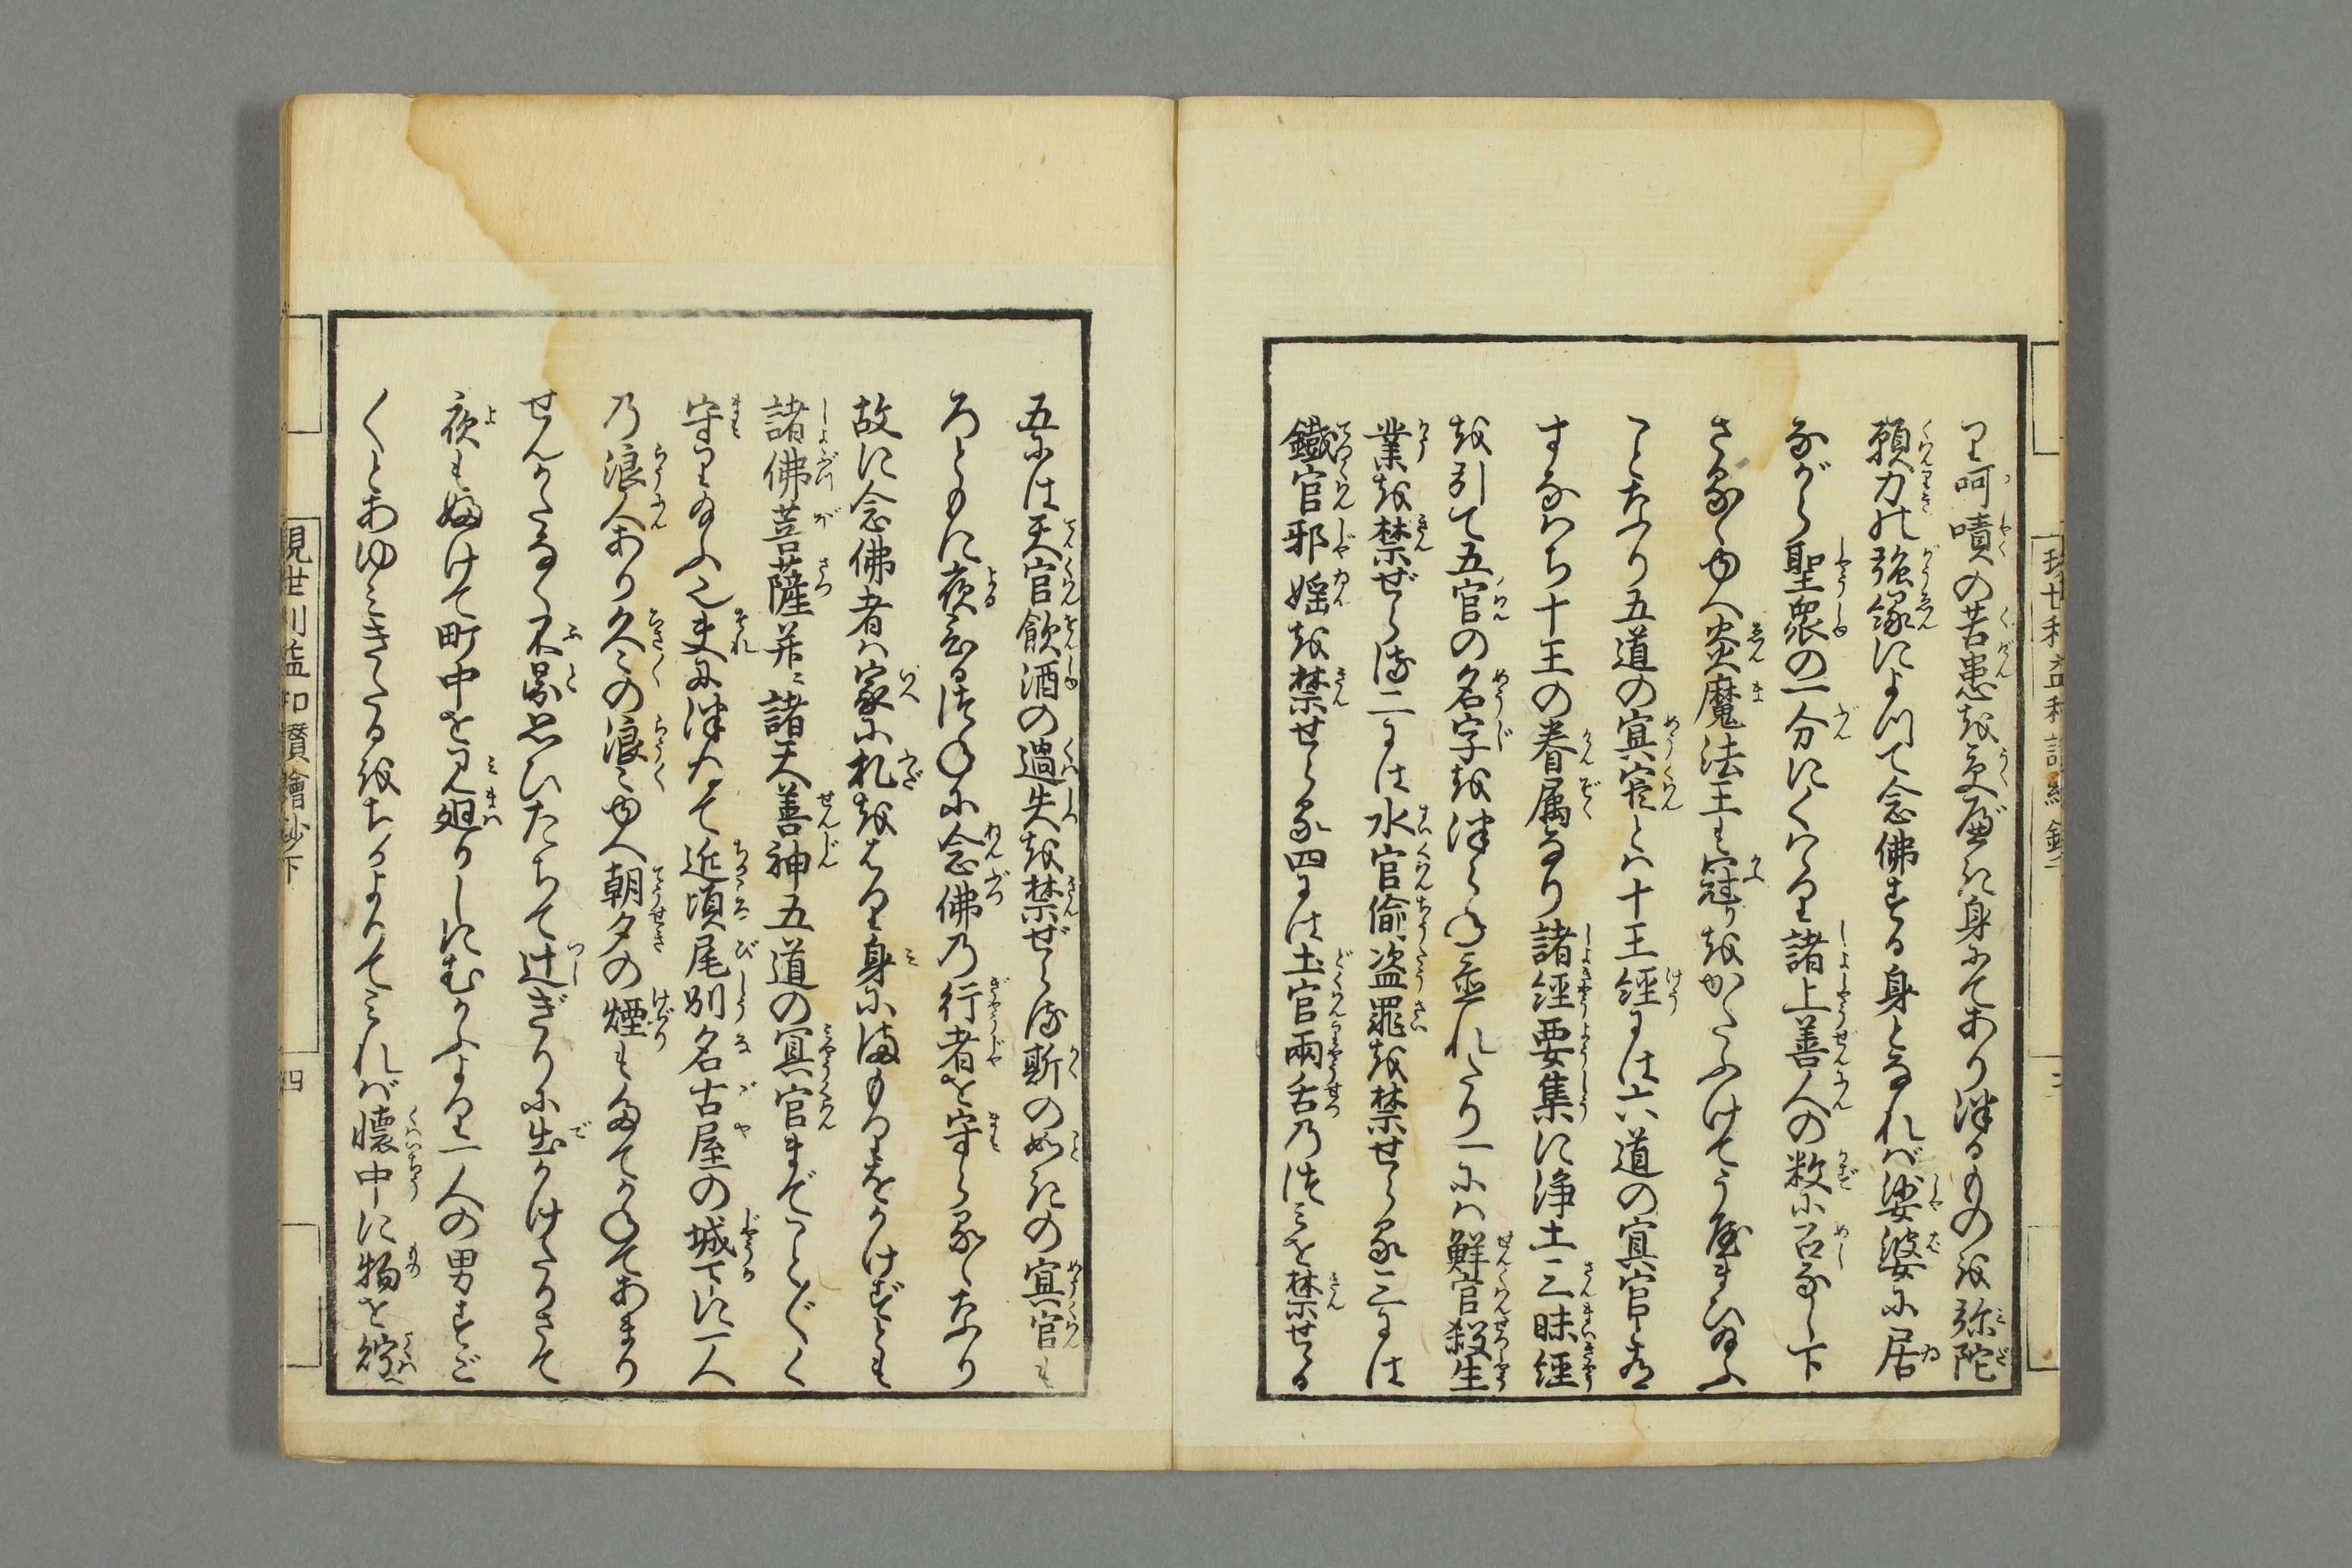 り呵嘖の苦患を受べき身にてありけるものを弥陀
願力の強縁によつて念佛する身となれば娑婆に居
ながら聖衆の一分にくはゝり諸上善人の数に召なし下
さるゝゆへ炎魔法王も冠りをかたふけてうやまひ給ふ
ことなり五道の冥官とは十王経には六道の冥官とあり
すなはち十王の眷属なり諸経要集に浄土三昧経
を引て五官の名字をつらねられたり一には鮮官殺生
業を禁ぜらる二には水官偸盗罪を禁せらる三には
鐵官邪婬を禁せらる四には土官兩舌のつみを禁せらる
五には天官飲酒の過失を禁ぜらる斯の如きの冥官も
ろともに夜ひるつねに念佛の行者を守らるゝなり
故に念佛者は家に札をはり身にまもりをかけずとも
諸佛菩薩并に諸天善神五道の冥官までことごとく
守り給ふ也夫につけて近頃尾州名古屋の城下に一人
の浪人あり久々の浪々ゆへ朝夕の煙もたてかねてあまり
せんかたなく不圖思ひたちて辻ぎりに出かけたりさて
夜も婦けて町中を見廻りしにむかふより一人の男すご
〱とあゆみきたるをちかよりてみれば懐中に物を貯へ
現世利益和讃繪鈔下
四